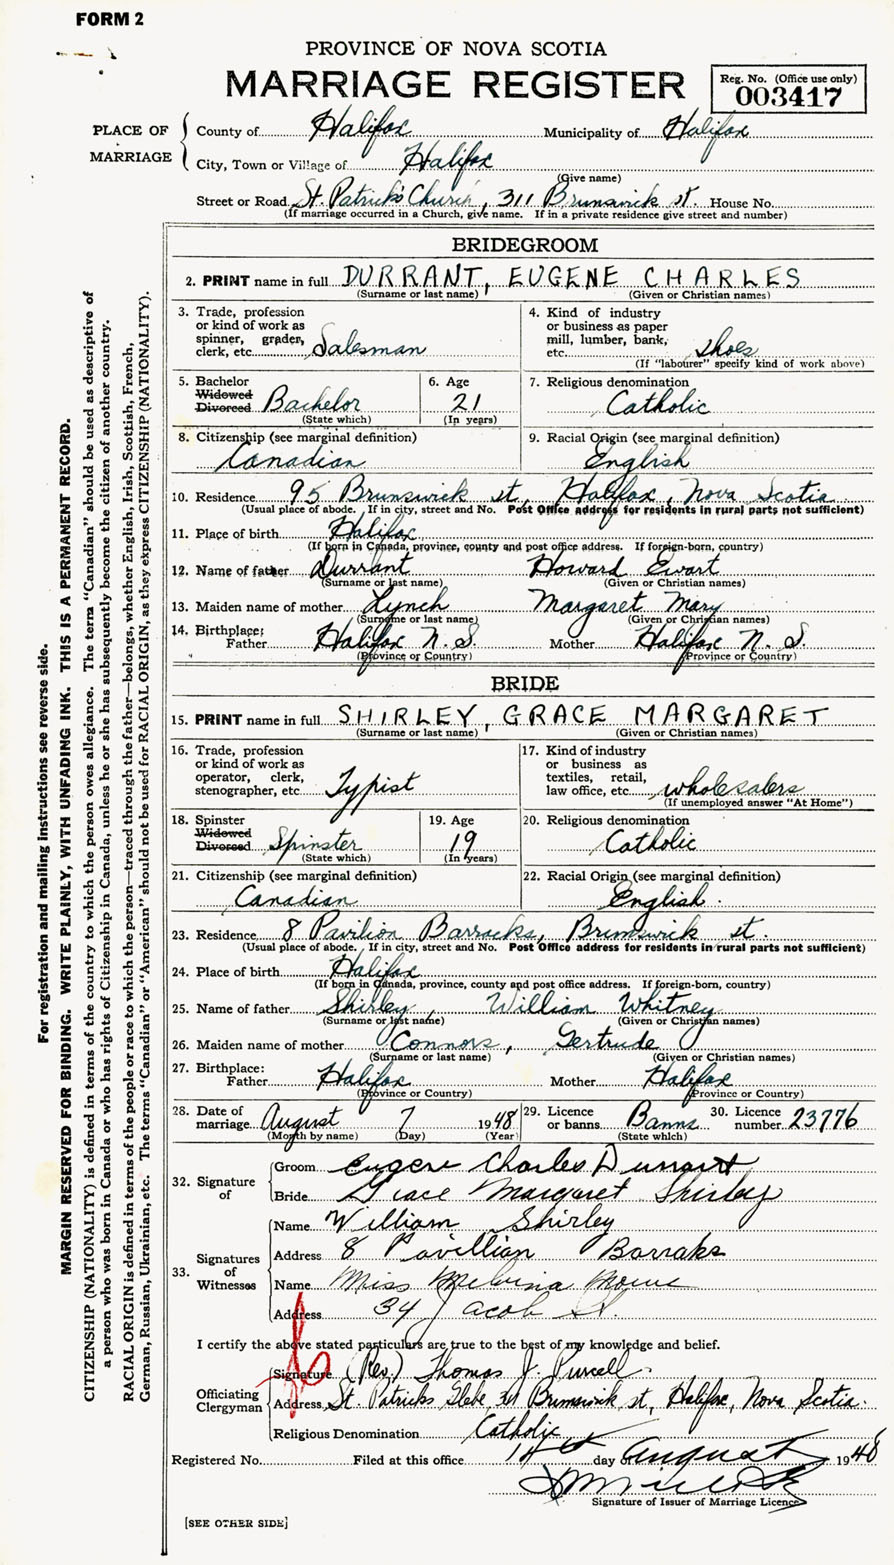 FORM 2
PROVINCE OF NOVA SCOTIA
MARRIAGE REGISTER
Reg. No. (Office use only)
003417
PLACE OF MARRIAGE
County of Halifax Municipality of Halifax
City, Town or Village of Halifax
(Give name)
Street or Road St. Patrick's Church, 311 Brunswick st. House No.
(If marriage occurred in a Church, give name. If in a private residence give street and number)
BRIDEGROOM
2. PRINT name in full DURRANT, EUGENE CHARLES
(Surname or last name) (Given or Christian names)
3. Trade, profession or kind of work as spinner, grader, clerk, etc. Salesman
4. Kind of industry or business as paper mill, lumber, bank, etc. shoes
(If "labourer" specify kind of work above)
5. Bachelor Widowed Divorced Bachelor
(State which)
6. Age 21
(In years)
7. Religious denomination Catholic
8. Citizenship (see marginal definition) Canadian
9. Racial Origin (see marginal definition) English
10. Residence 95 Brunswick st, Halifax, Nova Scotia
(Usual place of abode. If in city, street and No. Post Office address for residents in rural parts not sufficient)
11. Place of birth Halifax
(If born in Canada, province, county and post office address. If foreign-born, country)
12. Name of father Durrant Howard Ewart
(Surname or last name) (Given or Christian names)
13. Maiden name of mother Lynch Margaret Mary
(Surname or last name) (Given or Christian names)
14. Birthplace: Father Halifax N. S. Mother Halifax N. S.
(Province or Country) (Province or Country)
BRIDE
15. PRINT name in full SHIRLEY, GRACE MARGARET
(Surname or last name) (Given or Christian names)
16. Trade, profession or kind of work as operator, clerk, stenographer, etc. Typist
17. Kind of industry or business as textiles, retail, law office, etc. wholesalers
(If unemployed answer "At Home")
18. Spinster Widowed Divorced Spinster
(State which)
19. Age 19
(In years)
20. Religious denomination Catholic
21. Citizenship (see marginal definition) Canadian
22. Racial Origin (see marginal definition) English.
23. Residence 8 Pavilion Barracks, Brunswick st.
(Usual place of abode. If in city, street and No. Post Office address for residents in rural parts not sufficient)
24. Place of birth Halifax
(If born in Canada, province, county and post office address. If foreign-born, country)
25. Name of father Shirley, William Whitney
(Surname or last name) (Given or Christian names)
26. Maiden name of mother Connors, Gertrude
(Surname or last name) (Given or Christian names)
27. Birthplace: Father Halifax Mother Halifax
(Province or Country) (Province or Country)
28. Date of marriage August 7 1948
(Month by name) (Day) (Year)
29. Licence or banns Banns
(State which)
30. Licence number 23776
32. Signature of Groom Eugene Charles Durrant
Bride Grace Margaret Shirley
33. Signatures of Witnesses
Name William Shirley
Address 8 Pavillian Barraks
Name Miss
Address 34 Jacob St.
I certify the above stated particulars are true to the best of my knowledge and belief.
Officiating Clergyman
Signature (Rev.) Thomas J. Purcell.
Address St. Patricks Glebe, 311 Brunswick st, Halifax, Nova Scotia.
Religious Denomination Catholic
Registered No. Filed at this office 14th day August 1948
Signature of Issuer of Marriage Licence
[SEE OTHER SIDE]
For registration and mailing instructions see reverse side.
MARGIN RESERVED FOR BINDING. WRITE PLAINLY, WITH UNFADING INK. THIS IS A PERMANENT RECORD.
CITIZENSHIP (NATIONALITY) is defined in terms of the country to which the person owes allegiance. The term "Canadian" should be used as descriptive of
a person who was born in Canada or who has rights of Citizenship in Canada, unless he or she has subsequently become the citizen of another country.
RACIAL ORIGIN is defined in terms of the people or race to which the person—traced through the father—belongs, whether English, Irish, Scottish, French,
German, Russian, Ukrainian, etc. The terms "Canadian" or "American" should not be used for RACIAL ORIGIN, as they express CITIZENSHIP (NATIONALITY).